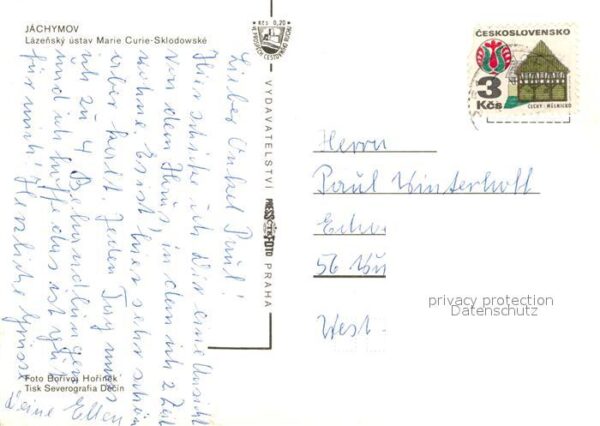 JÁCHYMOV
Lázeňský ústav Marie Curie-Sklodowské
Kčs 0,20
VYDAVATELSTVÍ PRESSFOTO PRAHA
ČESKOSLOVENSKO
3
Kčs
ČECHY - MĚLNICKO
Lieber Onkel Paul!
Hier schicke ich Dir eine Ansicht
von dem Haus, in dem ich 2 Zeit
wohne. Es ist hier sehr schön
aber kalt. Jeden Tag muss
ich zu 4 Behandlungen
und ich hoffe das ist gut
für mich! Herzliche Grüsse
Deine Ellen
Herrn
Paul Winterhoff
56 Wu
West-
privacy protection
Datenschutz
Foto Bořivoj Hořínek
Tisk Severografia Děčín